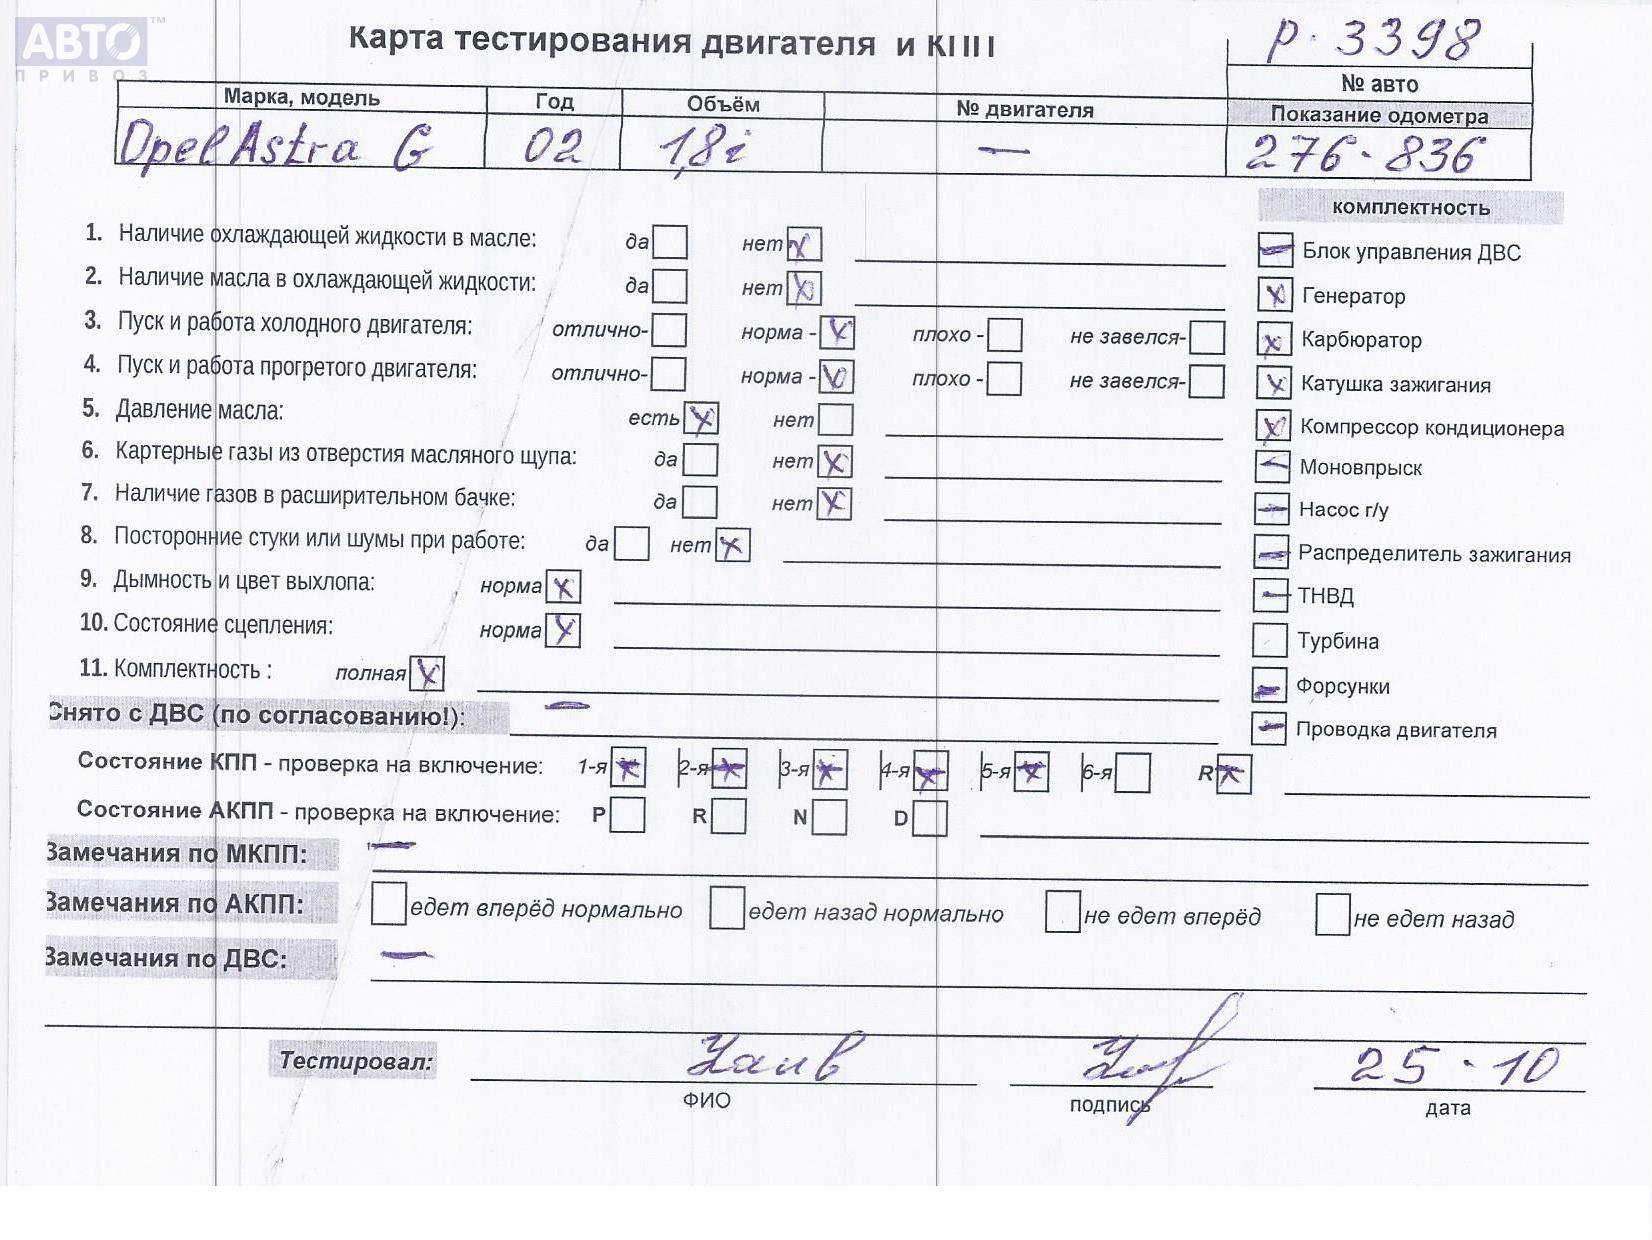 АВТО™
ПРИВОЗ
Карта тестирования двигателя и КПП
р. 3398
№ авто
Марка, модель Год Объём № двигателя Показание одометра
Opel Astra G 02 1,8i — 276-836
комплектность
1. Наличие охлаждающей жидкости в масле: да нет x
2. Наличие масла в охлаждающей жидкости: да нет x
3. Пуск и работа холодного двигателя: отлично- норма - x плохо - не завелся-
4. Пуск и работа прогретого двигателя: отлично- норма - x плохо - не завелся-
5. Давление масла: есть x нет
6. Картерные газы из отверстия масляного щупа: да нет x
7. Наличие газов в расширительном бачке: да нет x
8. Посторонние стуки или шумы при работе: да нет x
9. Дымность и цвет выхлопа: норма x
10. Состояние сцепления: норма x
11. Комплектность : полная x
— Блок управления ДВС
x Генератор
x Карбюратор
x Катушка зажигания
x Компрессор кондиционера
— Моновпрыск
— Насос г/у
— Распределитель зажигания
— ТНВД
Турбина
— Форсунки
— Проводка двигателя
Снято с ДВС (по согласованию!): —
Состояние КПП - проверка на включение: 1-я x 2-я x 3-я x 4-я x 5-я x 6-я R x
Состояние АКПП - проверка на включение: P R N D
Замечания по МКПП: —
Замечания по АКПП: едет вперёд нормально едет назад нормально не едет вперёд не едет назад
Замечания по ДВС: —
Тестировал: 25-10
ФИО подпись дата